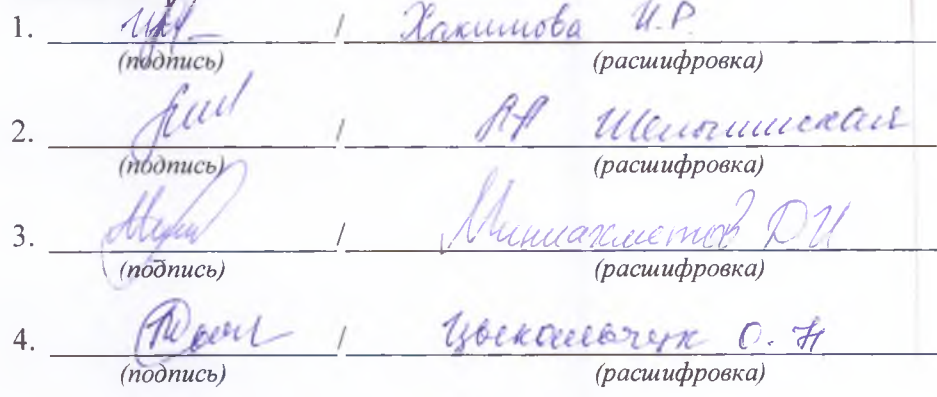 1. / Хакимова И.Р.
(подпись) (расшифровка)
2. / АА
(подпись) (расшифровка)
3. / Миниахметов ДИ
(подпись) (расшифровка)
4. / О.Н
(подпись) (расшифровка)